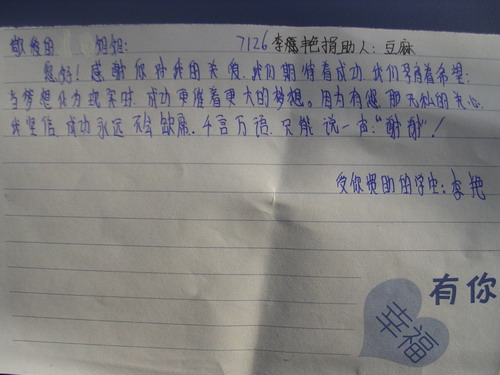 敬爱的 姐姐: 7126李艳捐助人:豆麻
您好!感谢你对我的关爱,我们期待着成功,我们孕育着希望;
当梦想化为现实时,成功更催着更大的梦想。因为有您那无私的关心,
我坚信成功永远不会缺席,千言万语,只能说一声:“谢谢”!
受你资助的学生:李艳
有你
幸福